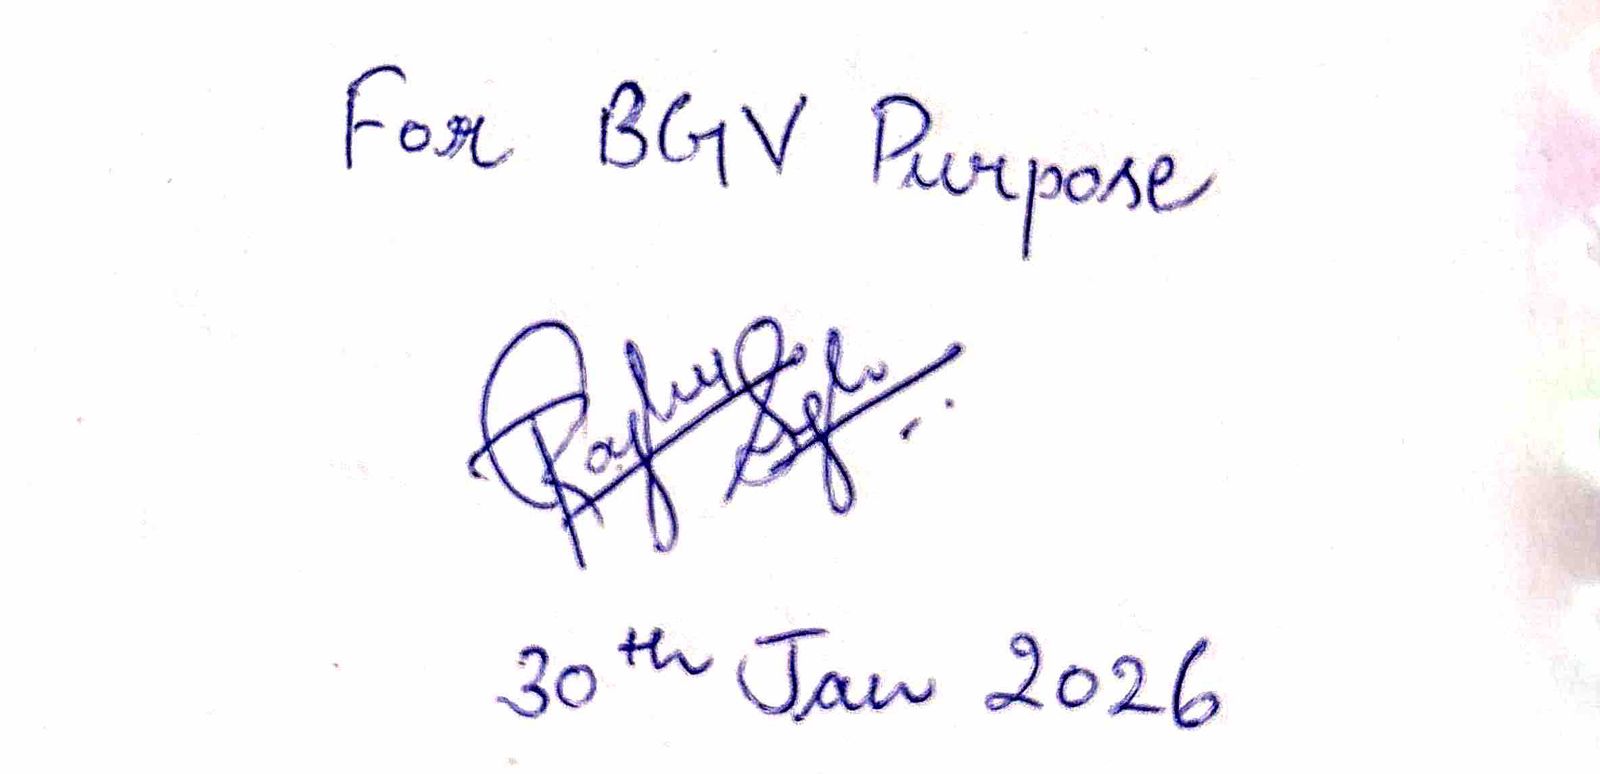 For BGV Purpose
30th Jan 2026